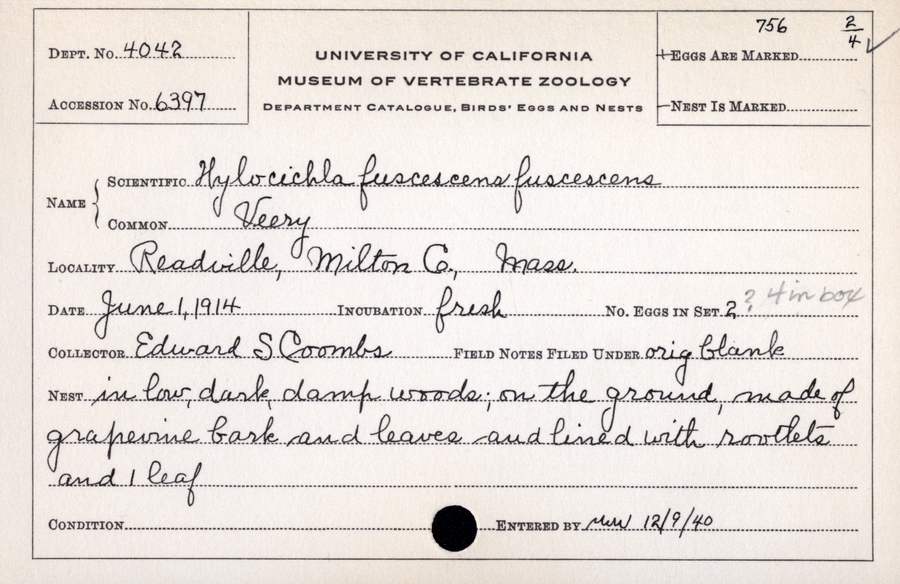 756 2/4 ✓
DEPT. No. 4042
UNIVERSITY OF CALIFORNIA
EGGS ARE MARKED
MUSEUM OF VERTEBRATE ZOOLOGY
ACCESSION No. 6397
DEPARTMENT CATALOGUE, BIRDS' EGGS AND NESTS
NEST IS MARKED
NAME { SCIENTIFIC Hylocichla fuscescens fuscescens
COMMON Veery
LOCALITY Readville, Milton Co., Mass.
DATE June 1, 1914 INCUBATION fresh No. EGGS IN SET 2 ? 4 in box
COLLECTOR Edward S Coombs FIELD NOTES FILED UNDER orig blank
NEST in low, dark, damp woods; on the ground, made of
grapevine bark and leaves and lined with rootlets
and 1 leaf
CONDITION ENTERED BY 12/9/40